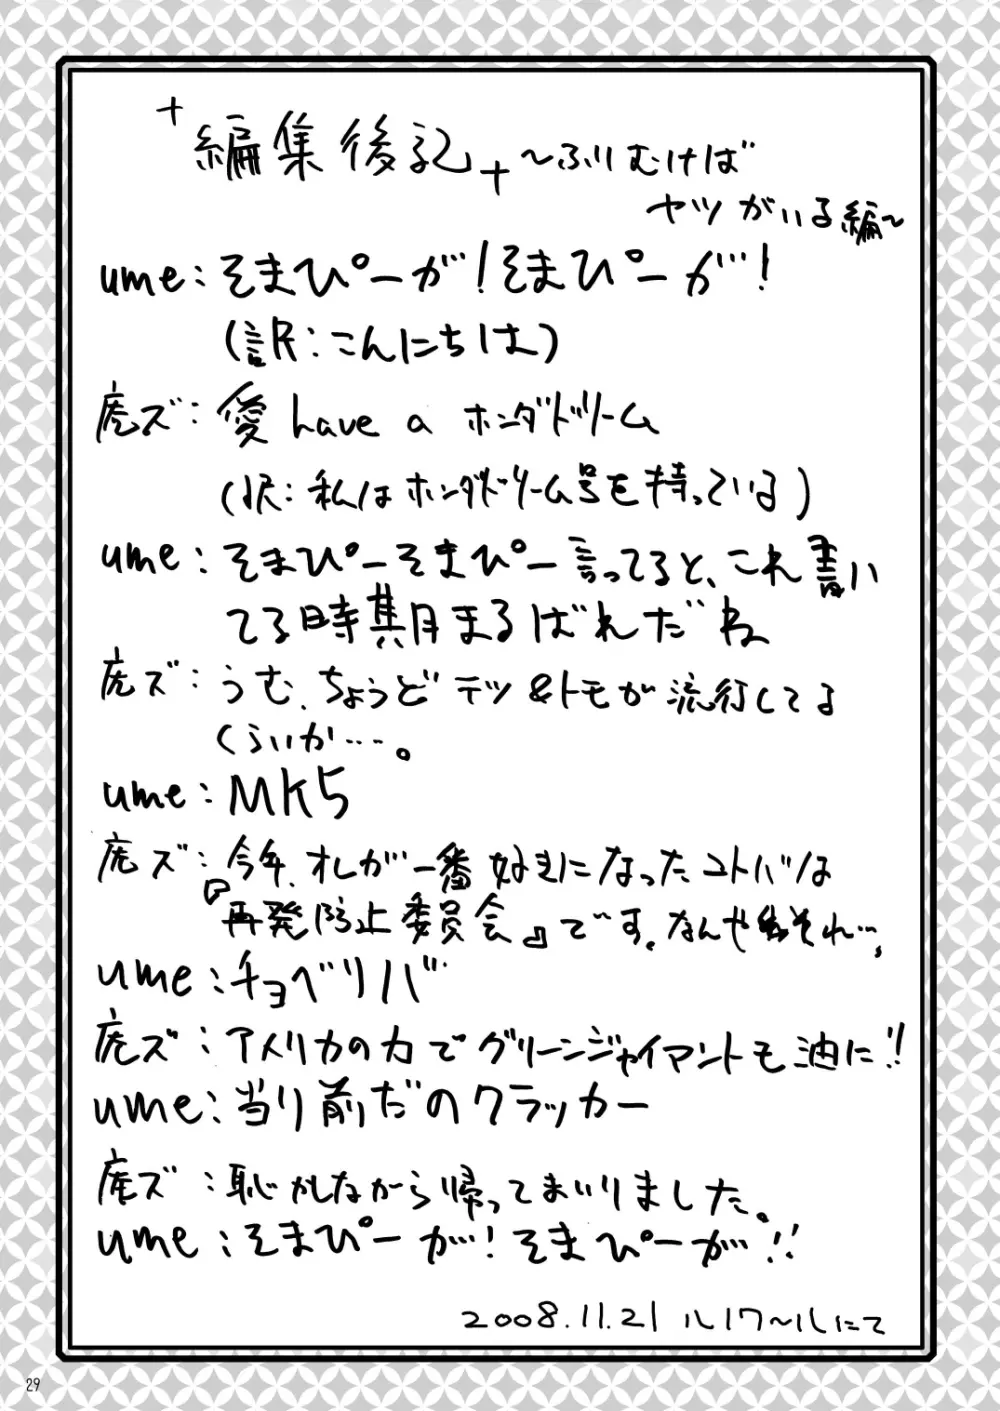 +編集後記+ ~ふりむけば
ヤツがいる編~
ume:そまぴーが!そまぴーが!
(訳:こんにちは)
虎ズ:愛 have a ホンダドリーム
(訳:私はホンダドリーム号を持っている)
ume:そまぴーそまぴー言ってると、これ書い
てる時期まるばれだね
虎ズ:うむ、ちょうどテツ&トモが流行してる
くらいか…。
ume:MK5
虎ズ:今年、オレが一番好きになったコトバは
『再発防止委員会』です。なんやそれ…。
ume:チョベリバ
虎ズ:アメリカの力でグリーンジャイアントも油に!!
ume:当り前だのクラッカー
虎ズ:恥かしながら帰ってまいりました。
ume:そまぴーが!そまぴーが!!
2008.11.21 ルノワールにて
29